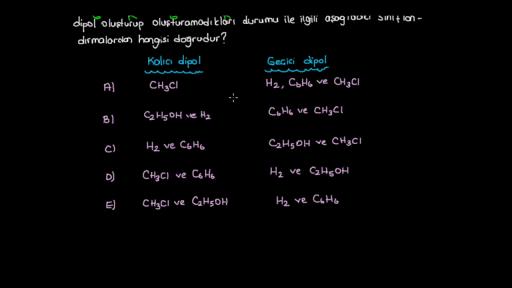 dipol oluşturup oluşturamadıkları durumu ile ilgili aşağıdaki sınıflan-
dırmalardan hangisi doğrudur?
Kalıcı dipol Geçici dipol
A) CH3Cl H2, C6H6 ve CH3Cl
B) C2H5OH ve H2 C6H6 ve CH3Cl
C) H2 ve C6H6 C2H5OH ve CH3Cl
D) CH3Cl ve C6H6 H2 ve C2H5OH
E) CH3Cl ve C2H5OH H2 ve C6H6